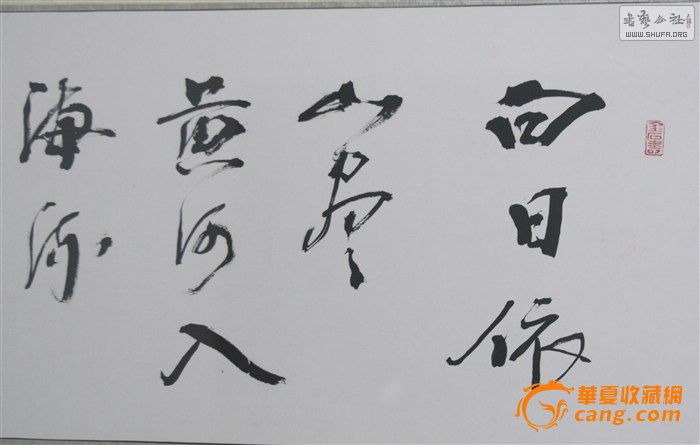 白日依
山尽
黄河入
海流
書艺公社
WWW.SHUFA.ORG
華夏收藏網
cang.com